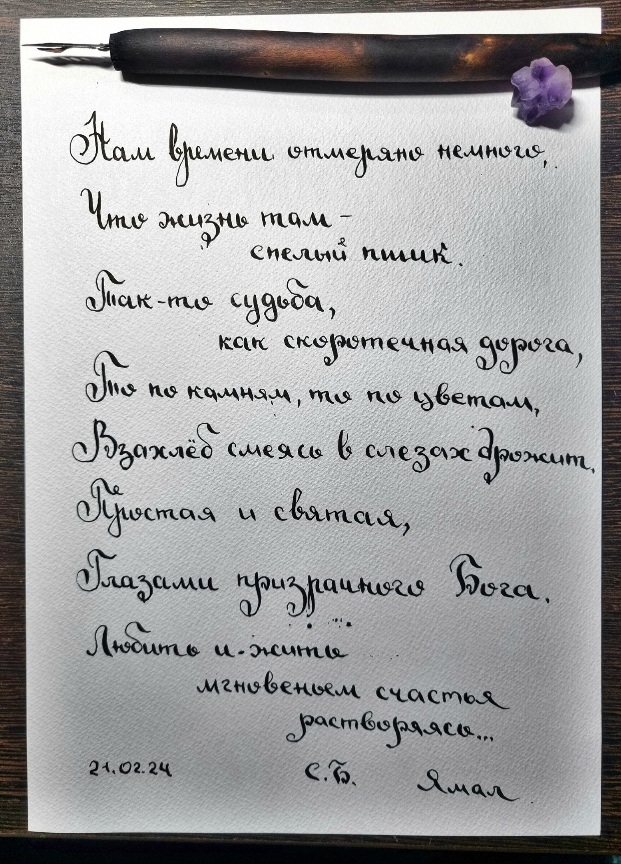 Нам времени отмеряно немного,
Что жизнь там -
спелый пшик.
Так-то судьба,
как скоротечная дорога,
То по камням, то по цветам,
Взахлёб смеясь в слезах дрожит.
Простая и святая,
Глазами призрачного Бога.
Любить и жить
мгновеньем счастья
растворяясь...
21.02.24 С.Б. Ямал